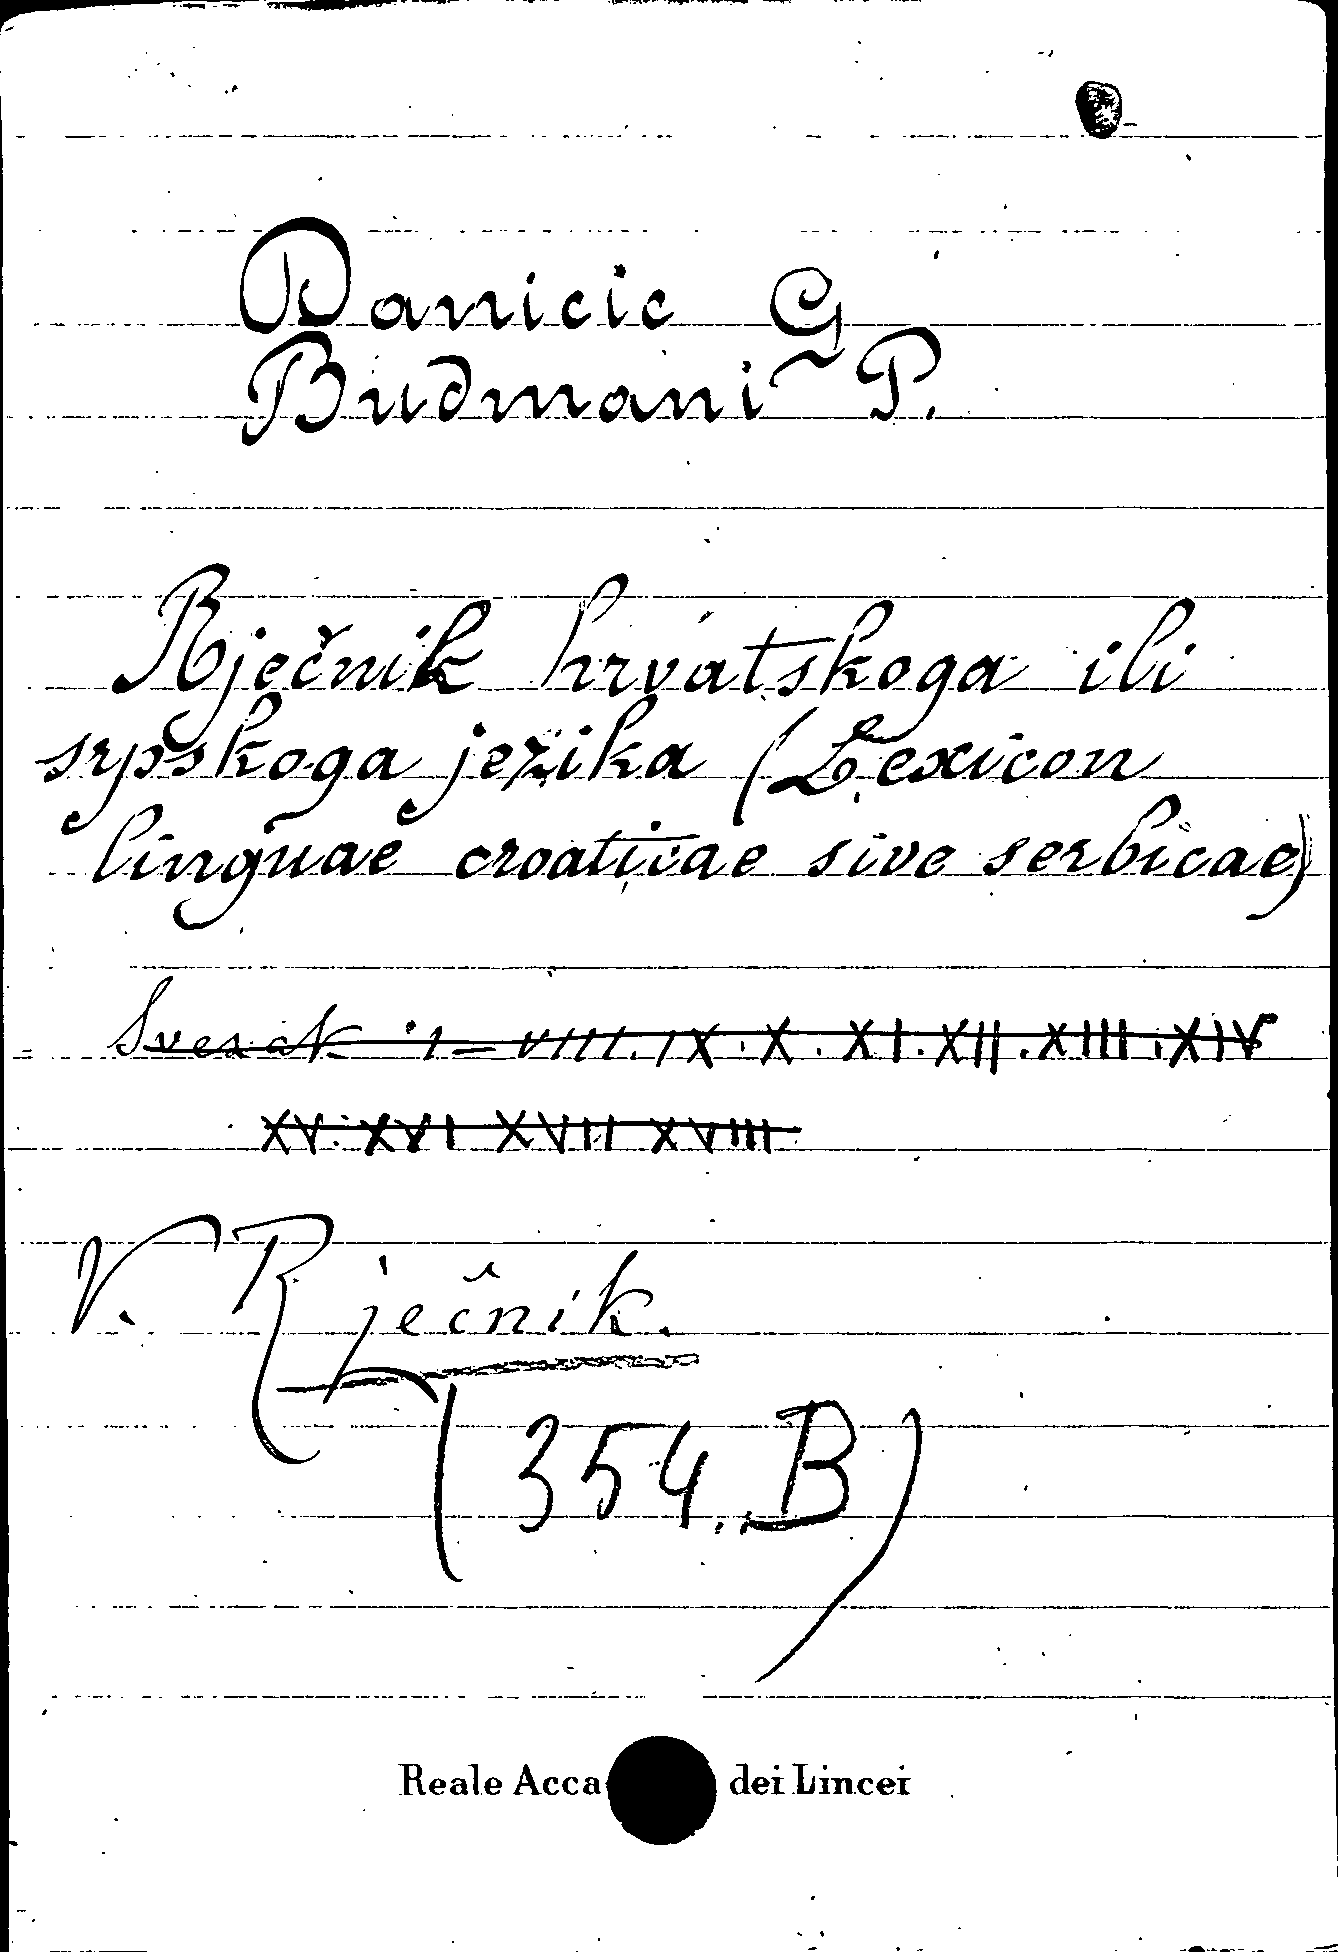 Danicic G
Budmani P.
Rječnik hrvatskoga ili
srpskoga jezika (Lexicon
linguae croaticae sive serbicae)
Svezak I – VIII. IX. X. XI. XII. XIII. XIV
XV. XVI XVII XVIII
V. Rječnik.
(354. B)
Reale Acca dei Lincei